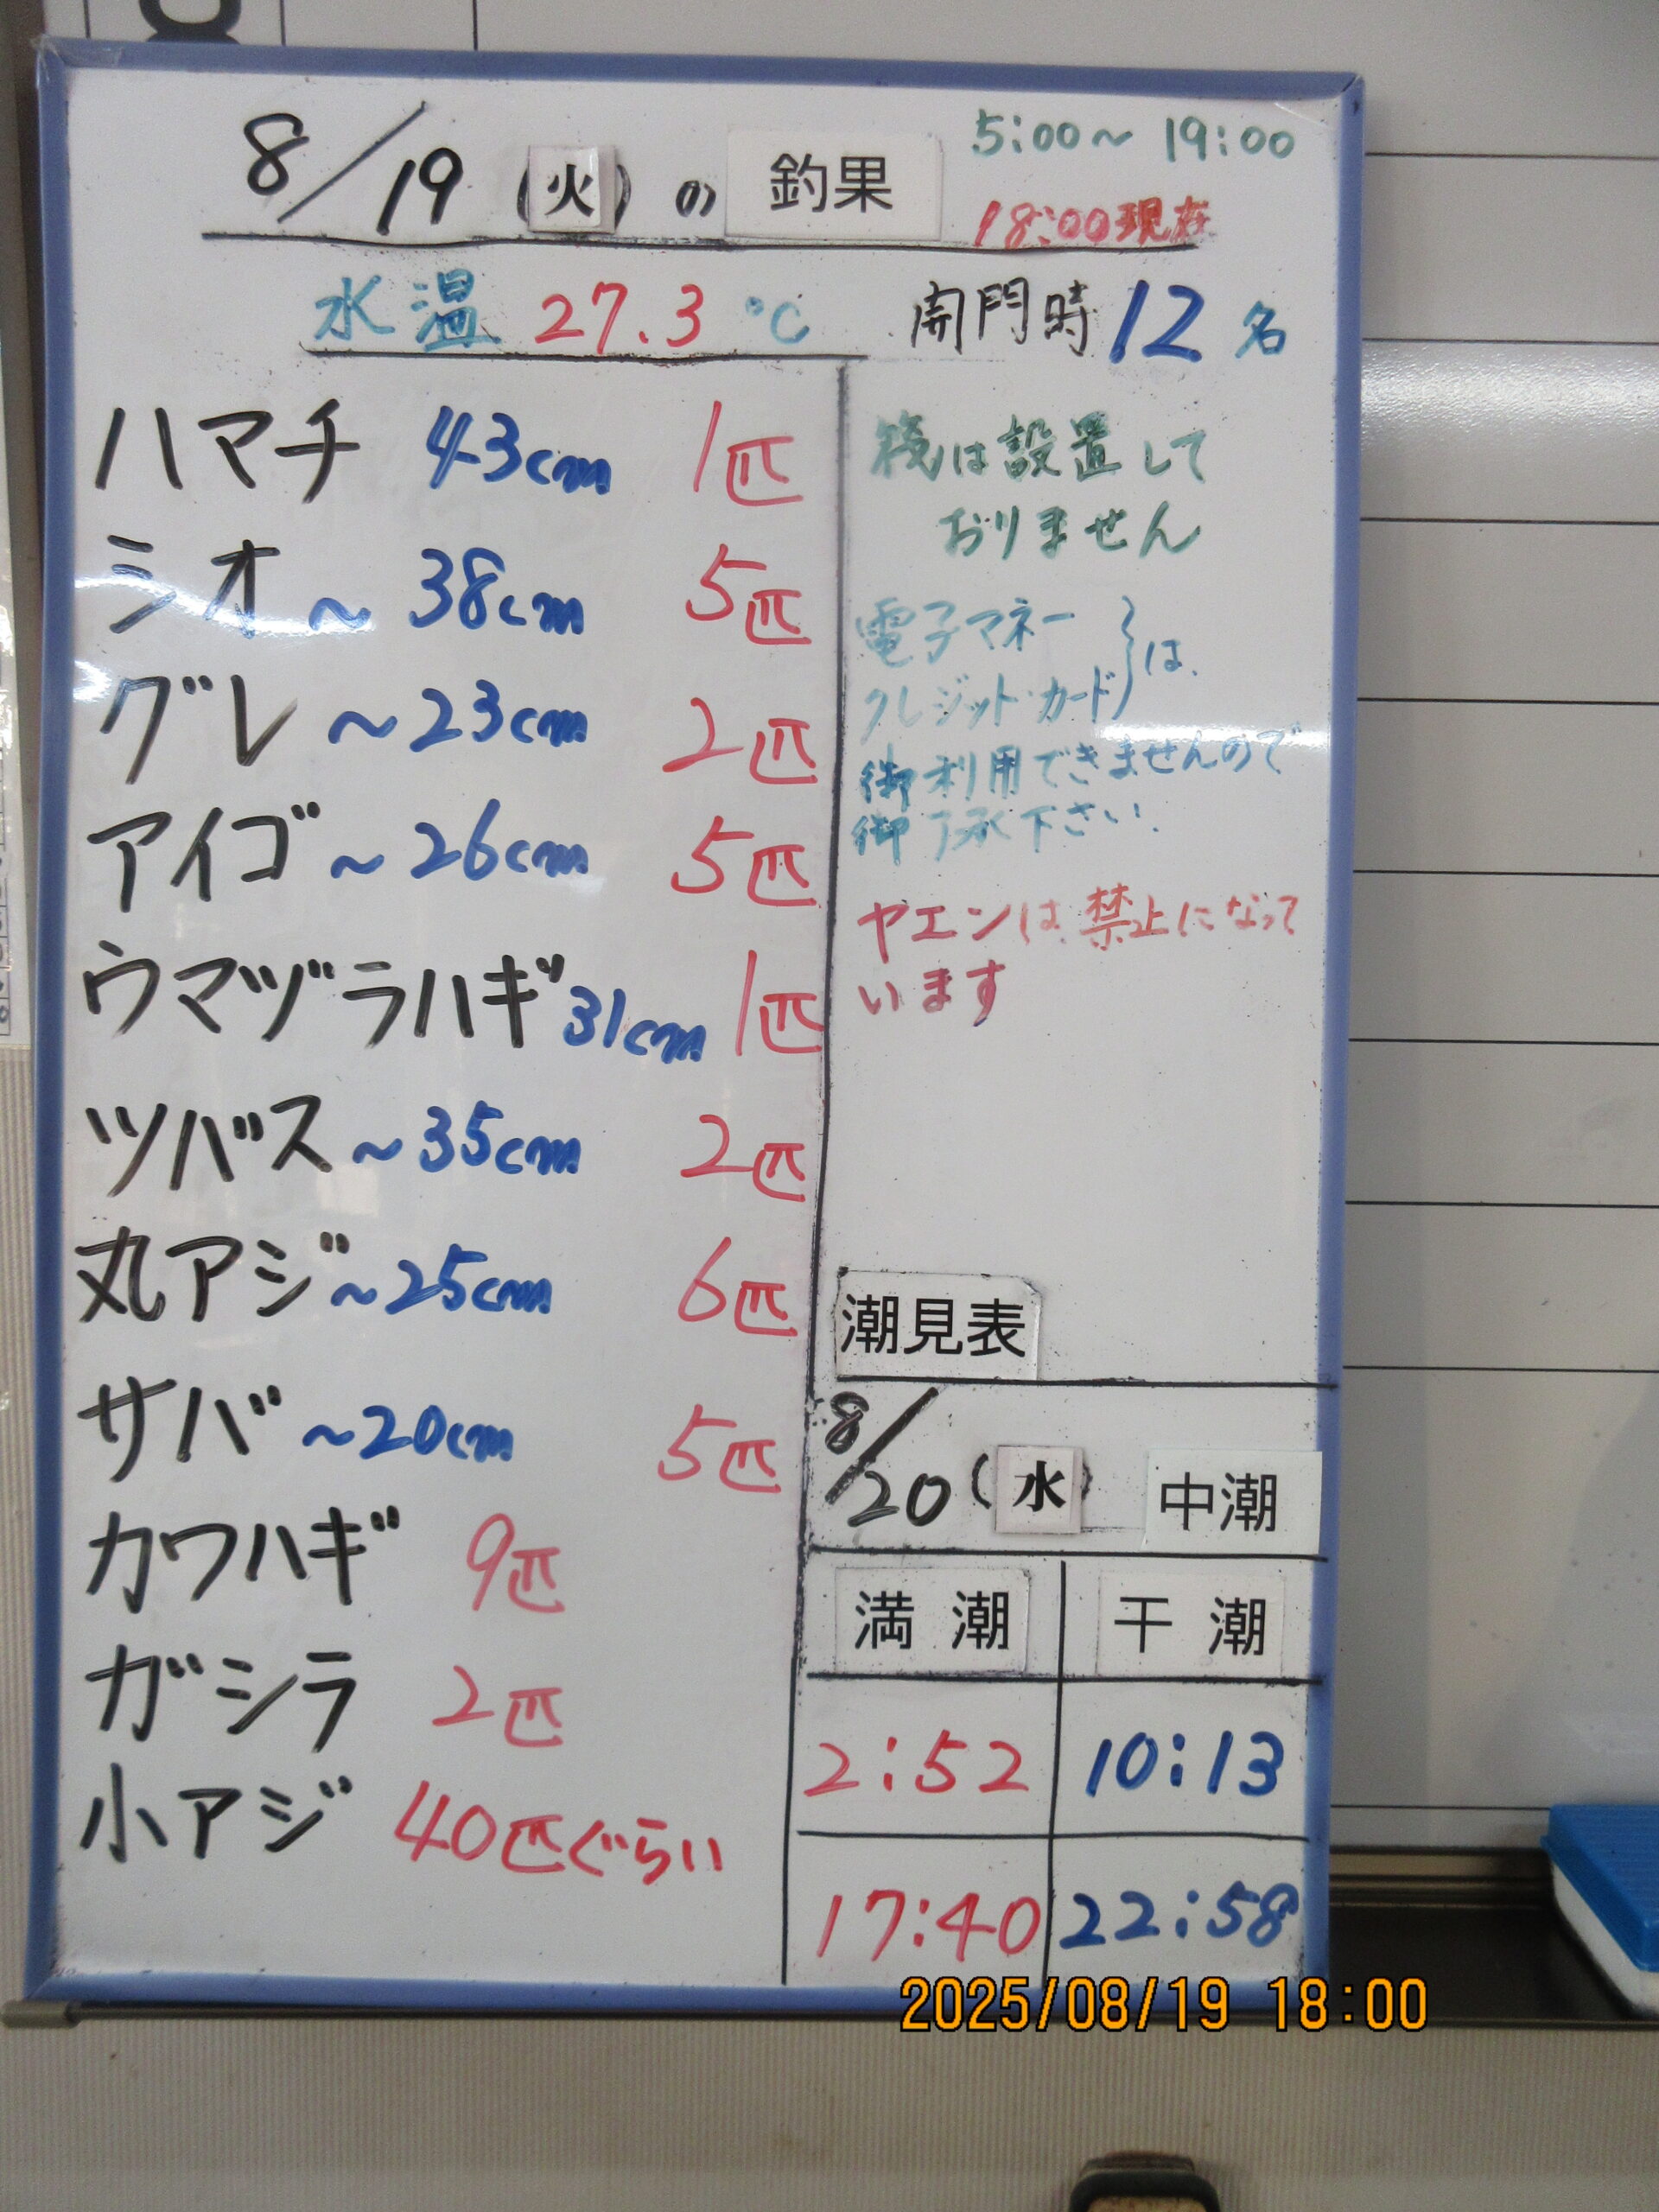 8/19(火)の釣果
5:00～19:00
18:00現在
水温 27.3℃
開門時12名
ハマチ 43cm 1匹
シオ ～38cm 5匹
グレ ～23cm 2匹
アイゴ ～26cm 5匹
ウマヅラハギ 31cm 1匹
ツバス ～35cm 2匹
丸アジ ～25cm 6匹
サバ ～20cm 5匹
カワハギ 9匹
ガシラ 2匹
小アジ 40匹ぐらい
筏は設置して
おりません
電子マネー
クレジット・カード}は、
御利用できませんので
御了承下さい。
ヤエンは禁止になって
います
潮見表
8/20(水) 中潮
満潮 干潮
2:52 10:13
17:40 22:58
2025/08/19 18:00